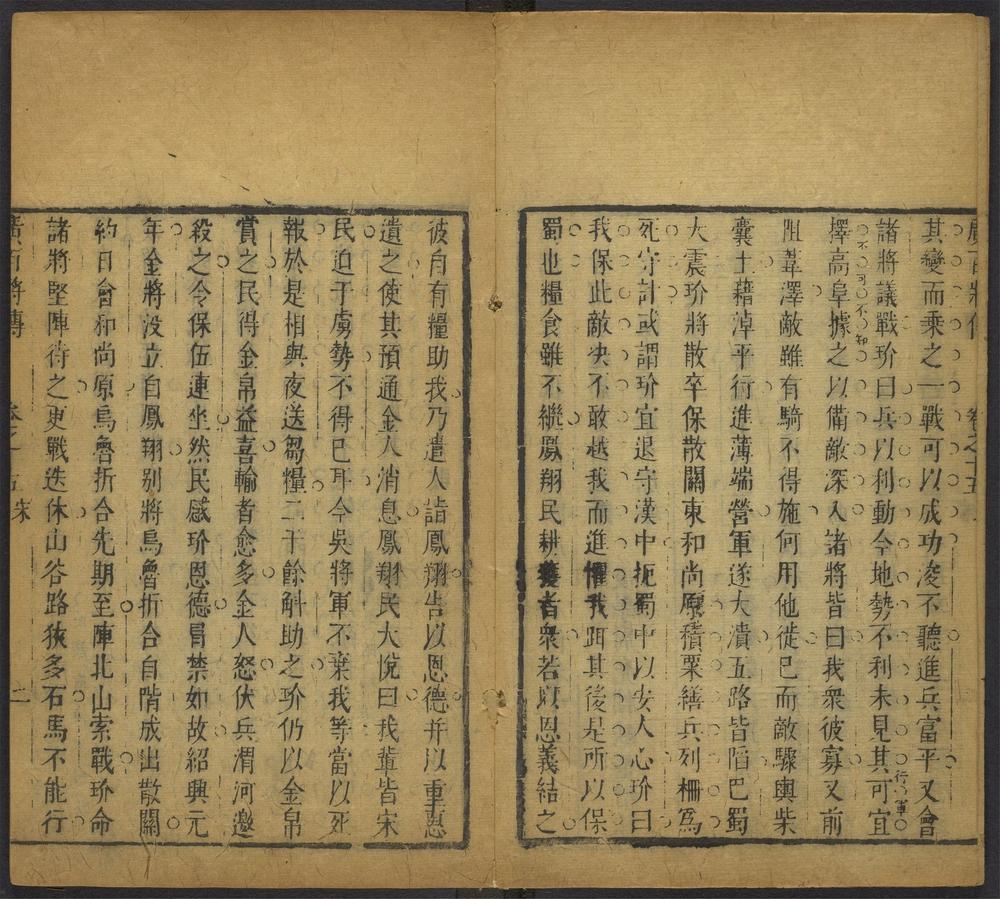 其變而乘之一戰可以成功浚不聽進兵富平又會
諸將議戰玠曰兵以利動今地勢不利未見其可宜
擇高阜據之以備敵深入諸將皆曰我衆彼寡又前
阻葦澤敵雖有騎不得施何用他徙已而敵驟輿柴
囊土藉淖平行進薄端營軍遂大潰五路皆陷巴蜀
大震玠將散卒保散關東和尚原積粟繕兵列柵爲
死守計或謂玠宜退守漢中扼蜀中以安人心玠曰
我保此敵決不敢越我而進懼我躡其後是所以保
蜀也糧食雖不繼鳳翔民耕穫者衆若以恩義結之
彼自有糧助我乃遣人詣鳳翔告以恩德并以重惠
遺之使其預通金人消息鳳翔民大悅曰我輩皆宋
民迫于虜勢不得已耳今吳將軍不棄我等當以死
報於是相與夜送芻糧二千餘斛助之玠仍以金帛
賞之民得金帛益喜輸者愈多金人怒伏兵渭河邀
殺之令保伍連坐然民感玠恩德冒禁如故紹興元
年金將沒立自鳳翔别將烏魯折合自階成出散關
約日會和尚原烏魯折合先期至陣北山索戰玠命
諸將堅陣待之更戰迭休山谷路狹多石馬不能行